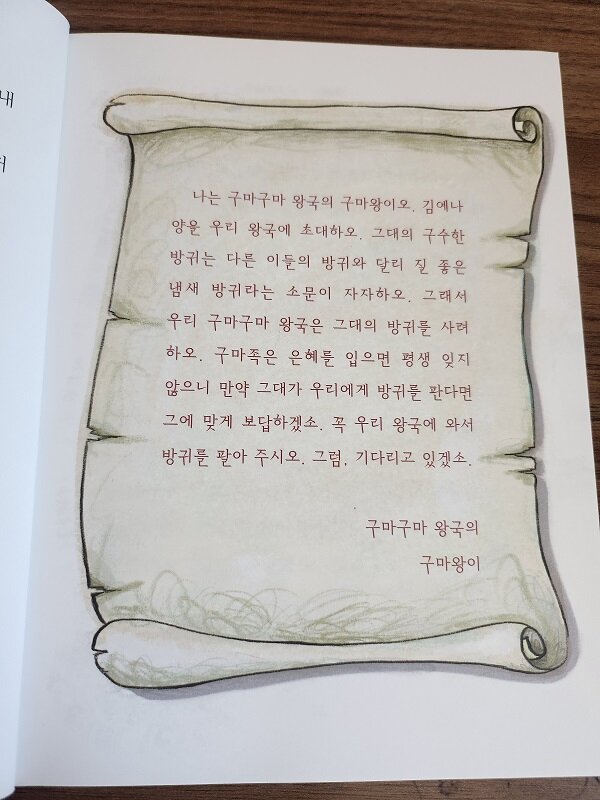 내
나는 구마구마 왕국의 구마왕이오. 김예나
양을 우리 왕국에 초대하오. 그대의 구수한
방귀는 다른 이들의 방귀와 달리 질 좋은
냄새 방귀라는 소문이 자자하오. 그래서
우리 구마구마 왕국은 그대의 방귀를 사려
하오. 구마족은 은혜를 입으면 평생 잊지
않으니 만약 그대가 우리에게 방귀를 판다면
그에 맞게 보답하겠소. 꼭 우리 왕국에 와서
방귀를 팔아 주시오. 그럼, 기다리고 있겠소.
구마구마 왕국의
구마왕이